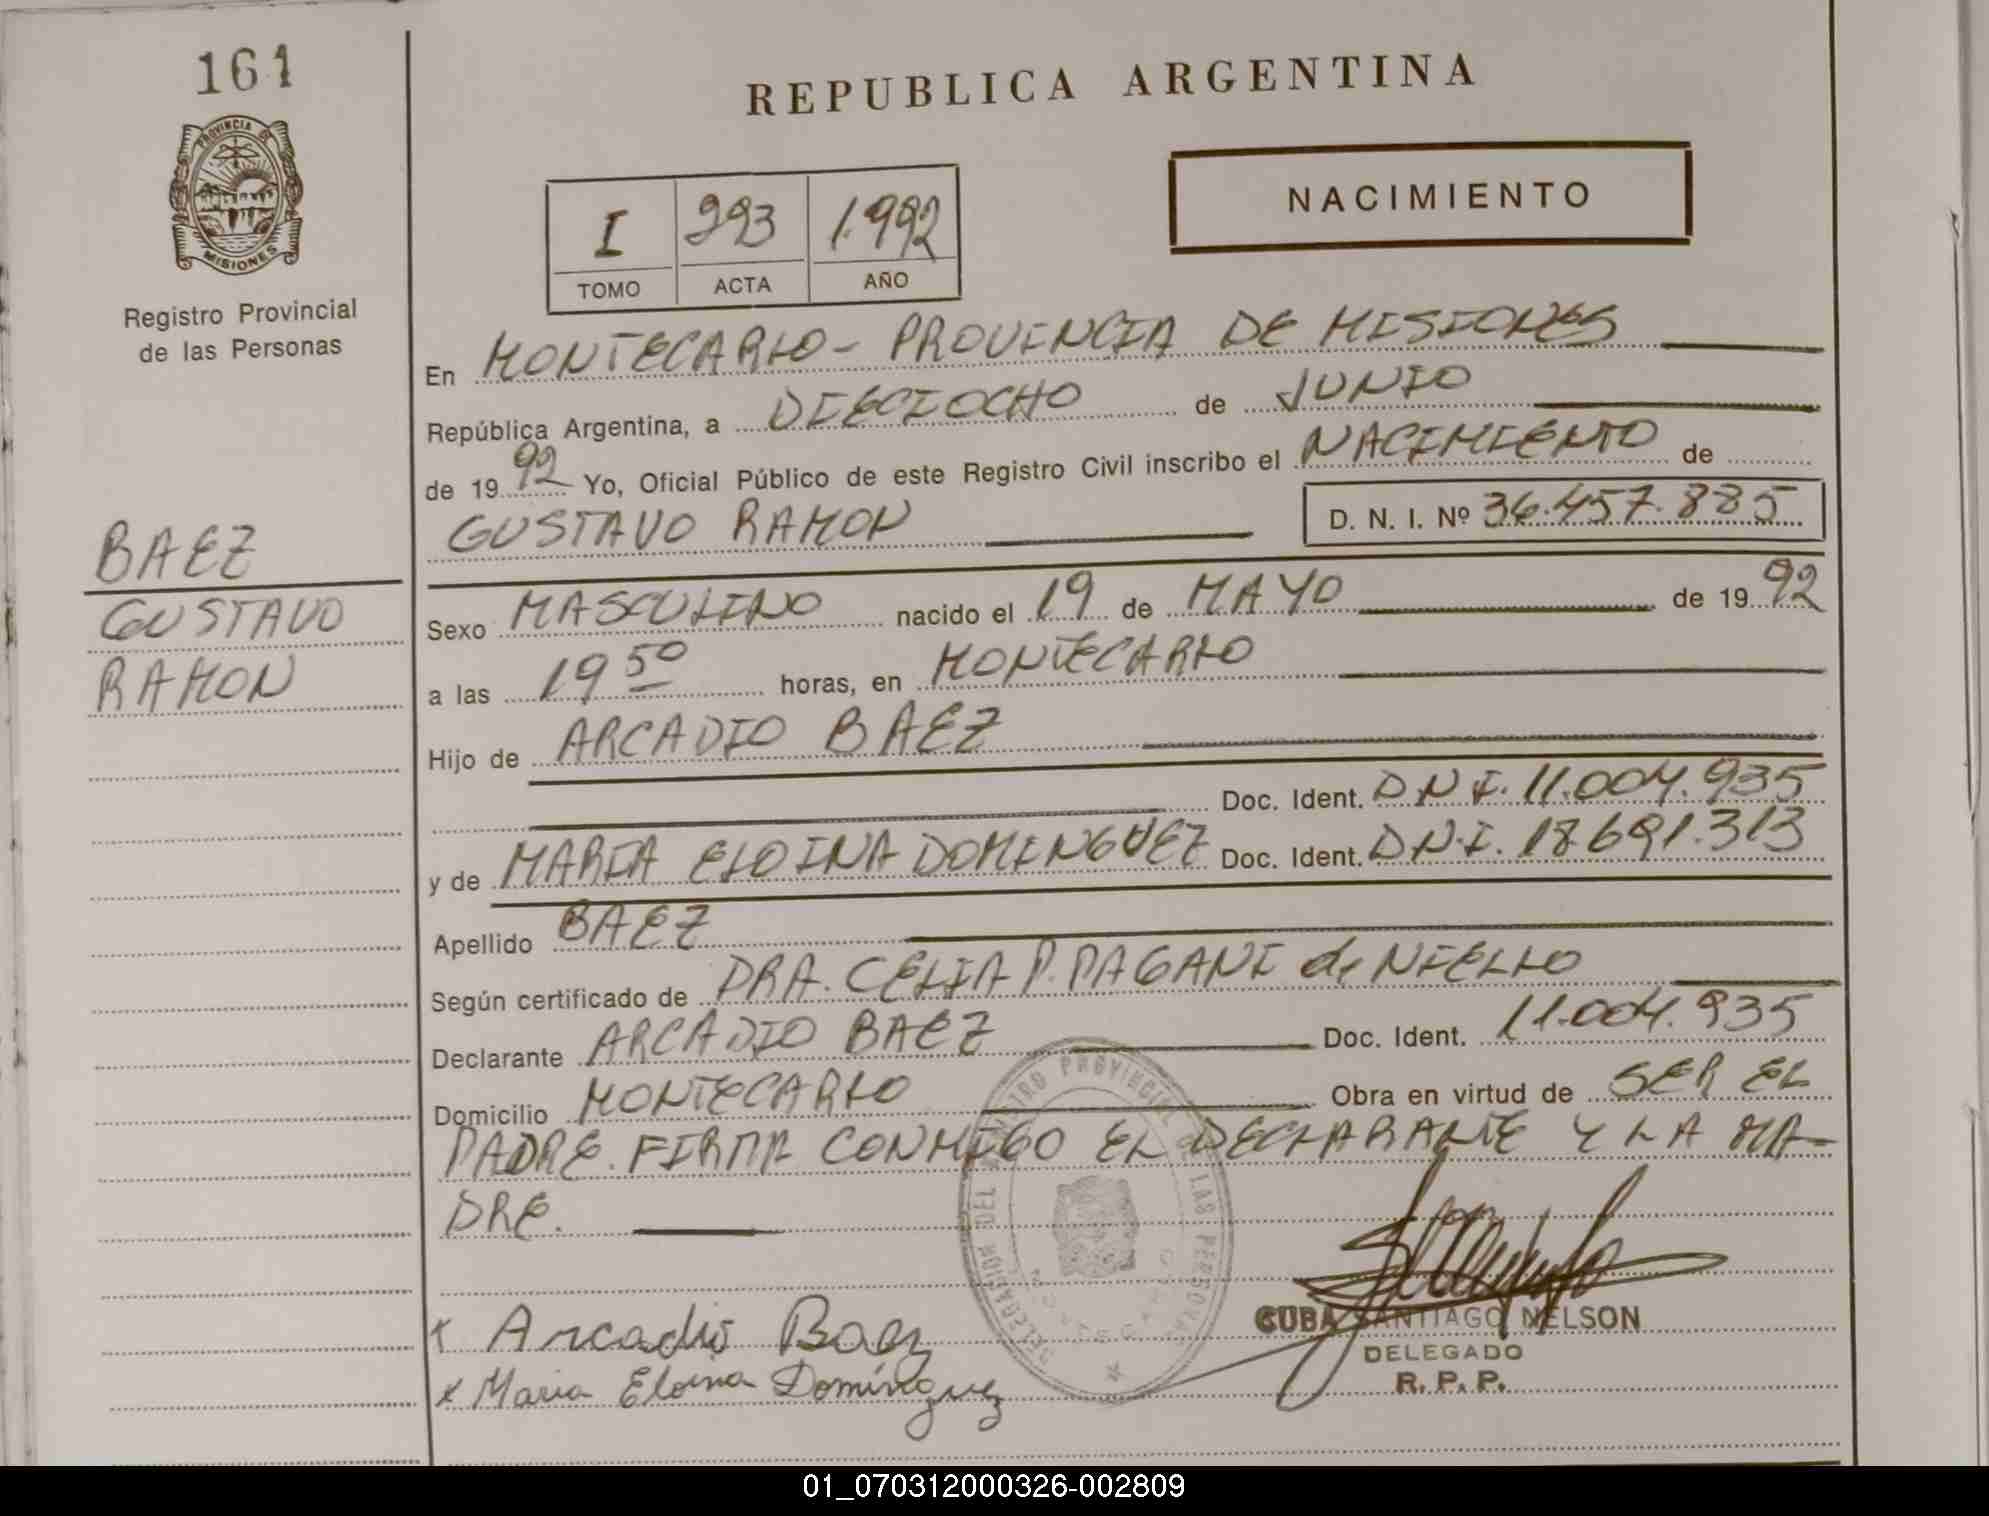 161
REPUBLICA ARGENTINA
PROVINCIA DE
MISIONES
Registro Provincial
de las Personas
I 293 1.992
TOMO ACTA AÑO
NACIMIENTO
En MONTECARLO - PROVINCIA DE MISIONES
República Argentina, a DIECIOCHO de JUNIO
de 1992 Yo, Oficial Público de este Registro Civil inscribo el NACIMIENTO de
GUSTAVO RAMON D. N. I. Nº 36.457.885
BAEZ
GUSTAVO
RAMON
Sexo MASCULINO nacido el 19 de MAYO de 1992
a las 19 50 horas, en MONTECARLO
Hijo de ARCADIO BAEZ
Doc. Ident. D.N.I. 11.004.935
y de MARIA ELOINA DOMINGUEZ Doc. Ident. D.N.I. 18.691.313
Apellido BAEZ
Según certificado de DRA. CELIA P. PAGANI de NIELLO
Declarante ARCADIO BAEZ Doc. Ident. 11.004.935
Domicilio MONTECARLO Obra en virtud de SER EL
PADRE. FIRMA CONMIGO EL DECLARANTE Y LA MA-
DRE.
DELEGACION DEL REGISTRO PROVINCIAL DE LAS PERSONAS
x Arcadio Baez
x Maria Eloina Domínguez
CUBA SANTIAGO NELSON
DELEGADO
R. P. P.
01_070312000326-002809